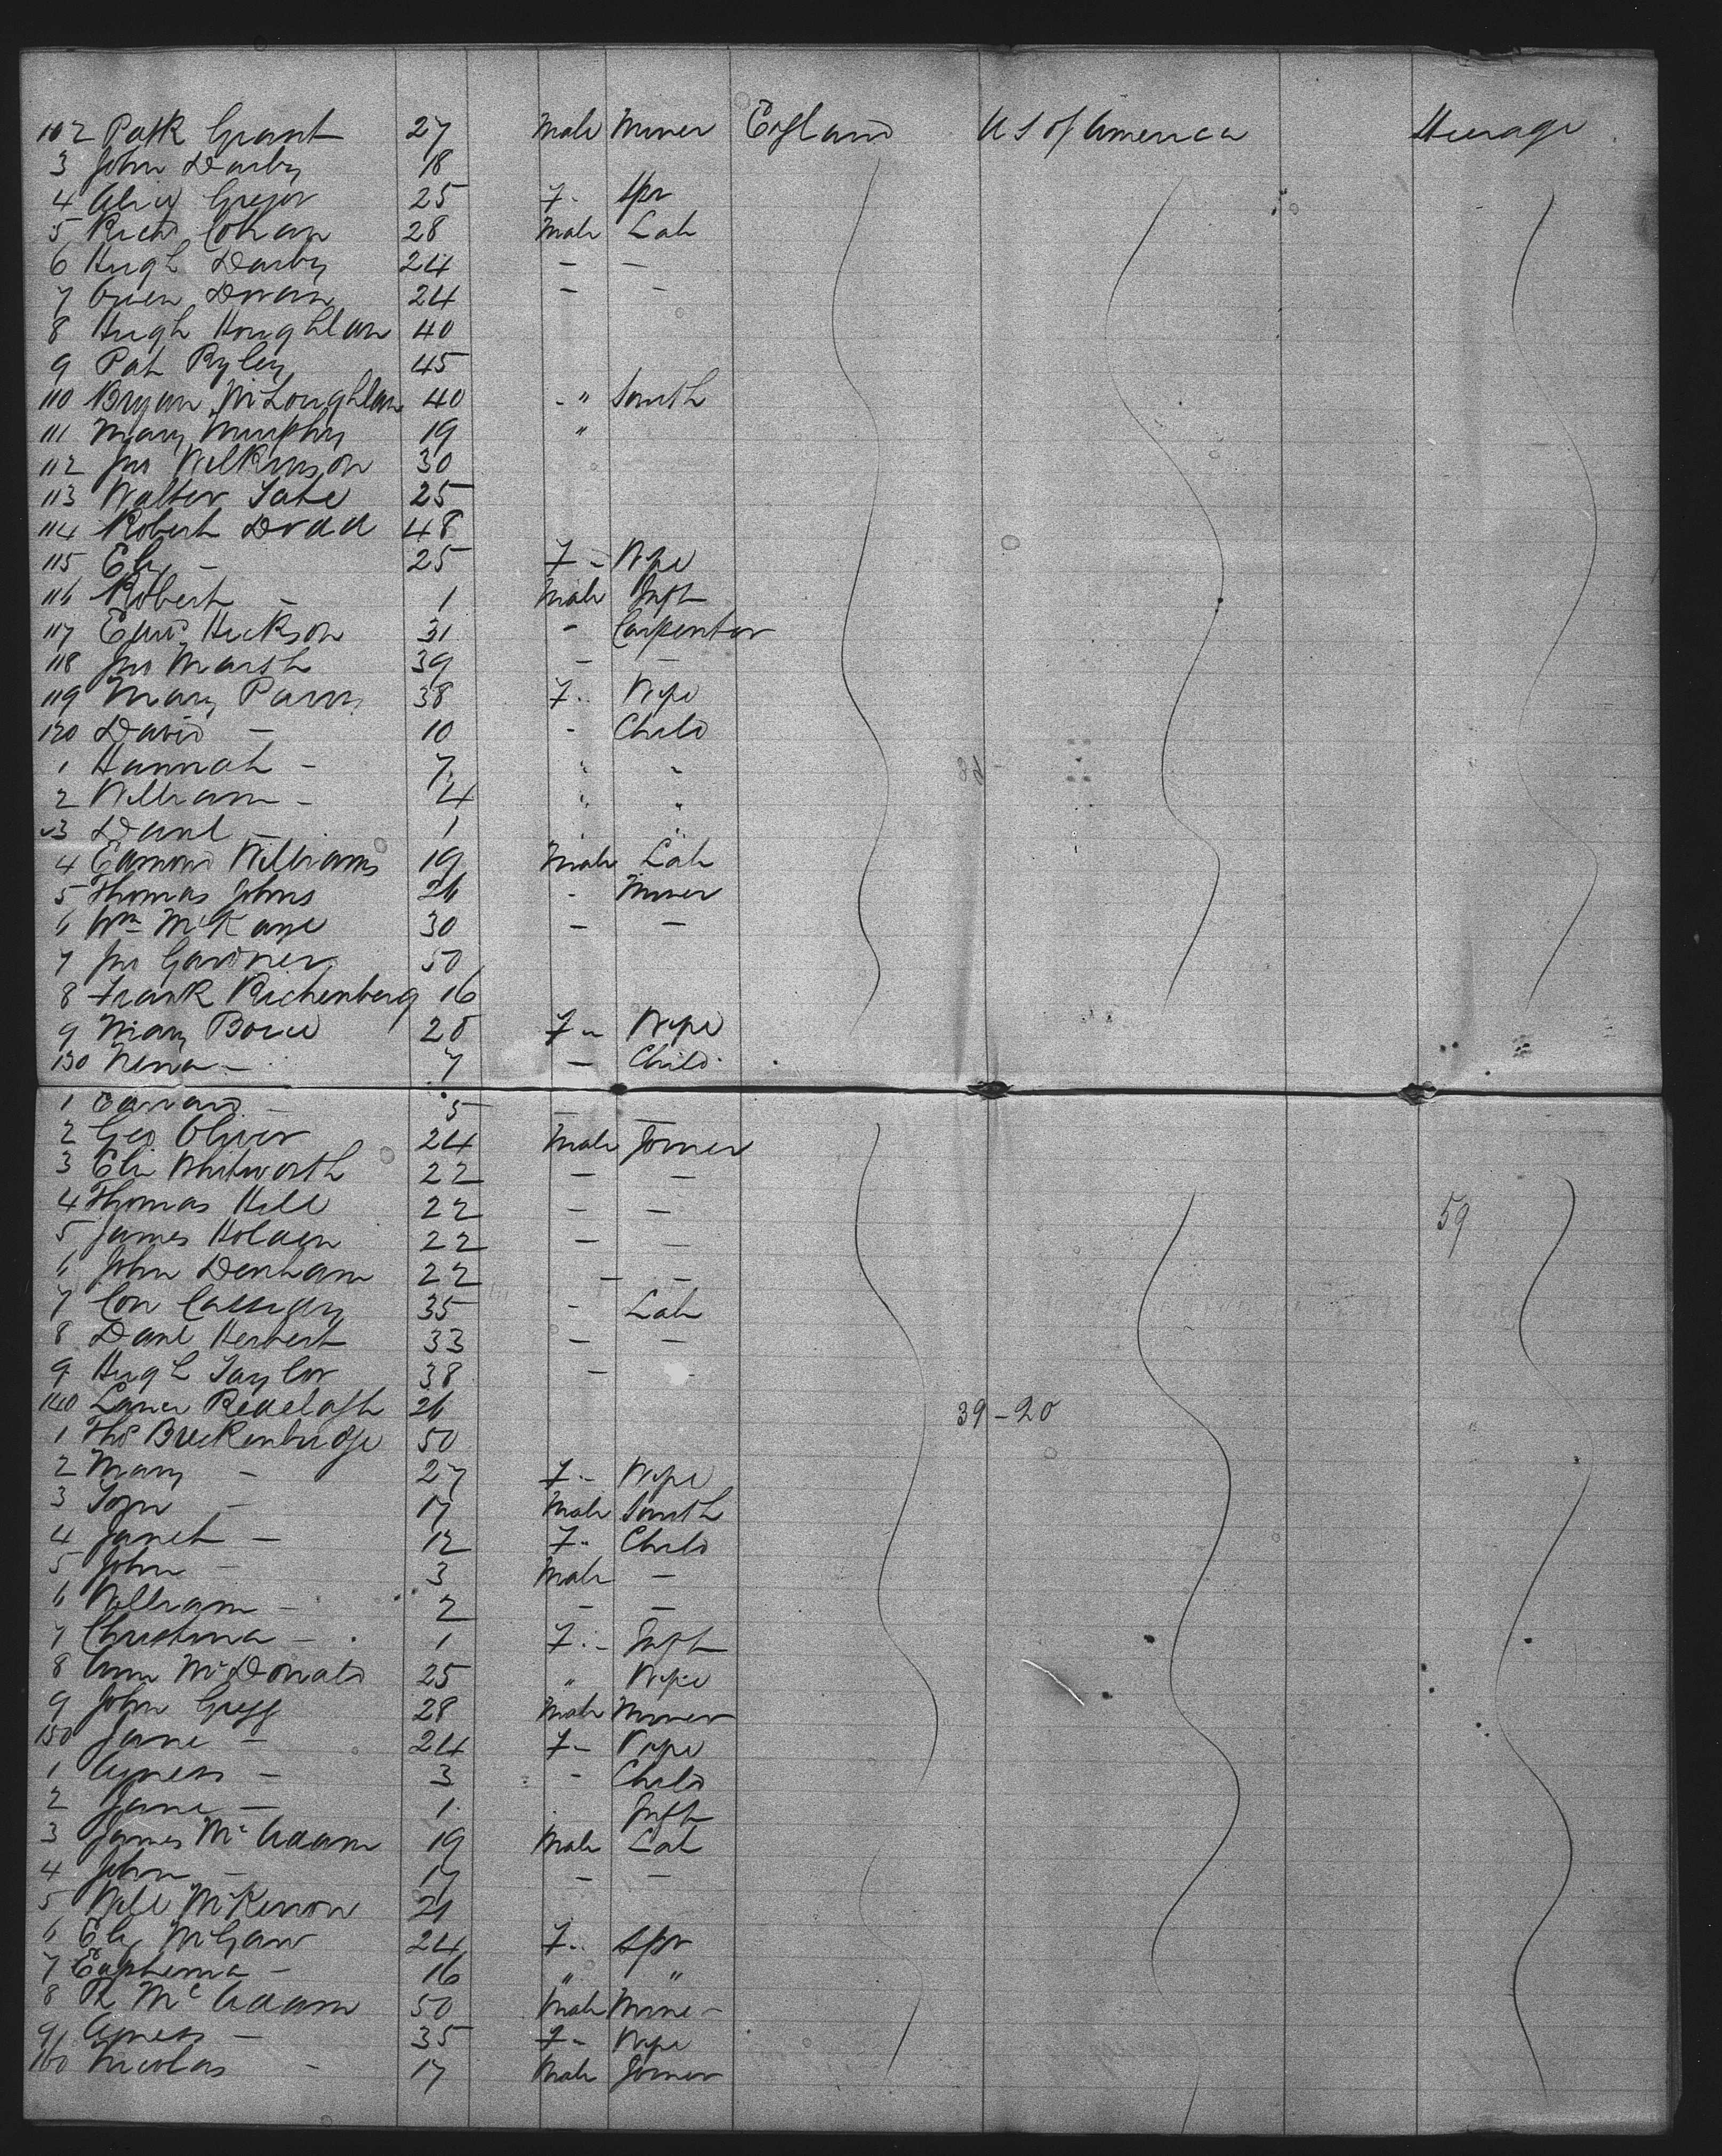 102 Patk Grant 27 Male Miner England U S of America Steerage
3 John Darby 18
4 Alice Gregor 25 F- Spr
5 Richd Cohan 28 Male Lab
6 Hugh Darby 24 - -
7 Owen Doran 24 - -
8 Hugh Houghlan 40
9 Pat Ryley 45
110 Bryan McLoughlan 40 - " Smith
111 Mary Murphy 19 "
112 Jno Wilkinson 30
113 Walter Tate 25
114 Robert Dodd 48
115 Eliz - 25 F- Wife
116 Robert - 1 Male Inft
117 Edwd Hickson 31 - Carpenter
118 Jno Marsh 39 - -
119 Mary Parry 38 F- Wife
120 David - 10 - Child
1 Hannah - 7 " "
2 William - 4 " "
3 Danl - 1 " "
4 Edmond Williams 19 Male Lab
5 Thomas Johns 26 - Miner
6 Wm McKane 30 - -
7 Jno Gardner 50
8 Frank Richenberg 16
9 Mary Bowe 28 F- Wife
130 Nena - 7 - Child
1 Edward - 5 - -
2 Geo Oliver 24 Male Joiner
3 Eli Whitworth 22 - -
4 Thomas Hill 22 - - 59
5 James Holden 22 - -
6 John Denham 22 - -
7 Con Cassidy 35 - Lab
8 Danl Herbert 33 - -
9 Hugh Taylor 38 - -
140 26 39-20
1 Thos Breckenbridge 50
2 Mary - 27 F- Wife
3 - 17 Male Smith
4 Janet - 12 F- Child
5 John - 3 Male -
6 William - 2 - -
7 Christina - 1 F- Inft
8 Ann McDonald 25 " Wife
9 John Gregg 28 Male Miner
150 Jane - 24 F- Wife
1 Agness - 3 - Child
2 Jane - 1 Inft
3 James McAdam 19 Male Lab
4 John - 17 - -
5 Will McKinnon 21
6 Eliz McGaw 24 F- Spr
7 Euphemia - 16 " "
8 R McAdam 50 Male Mine-
9 Agness - 35 F- Wife
160 Nicolas - 17 Male Joiner